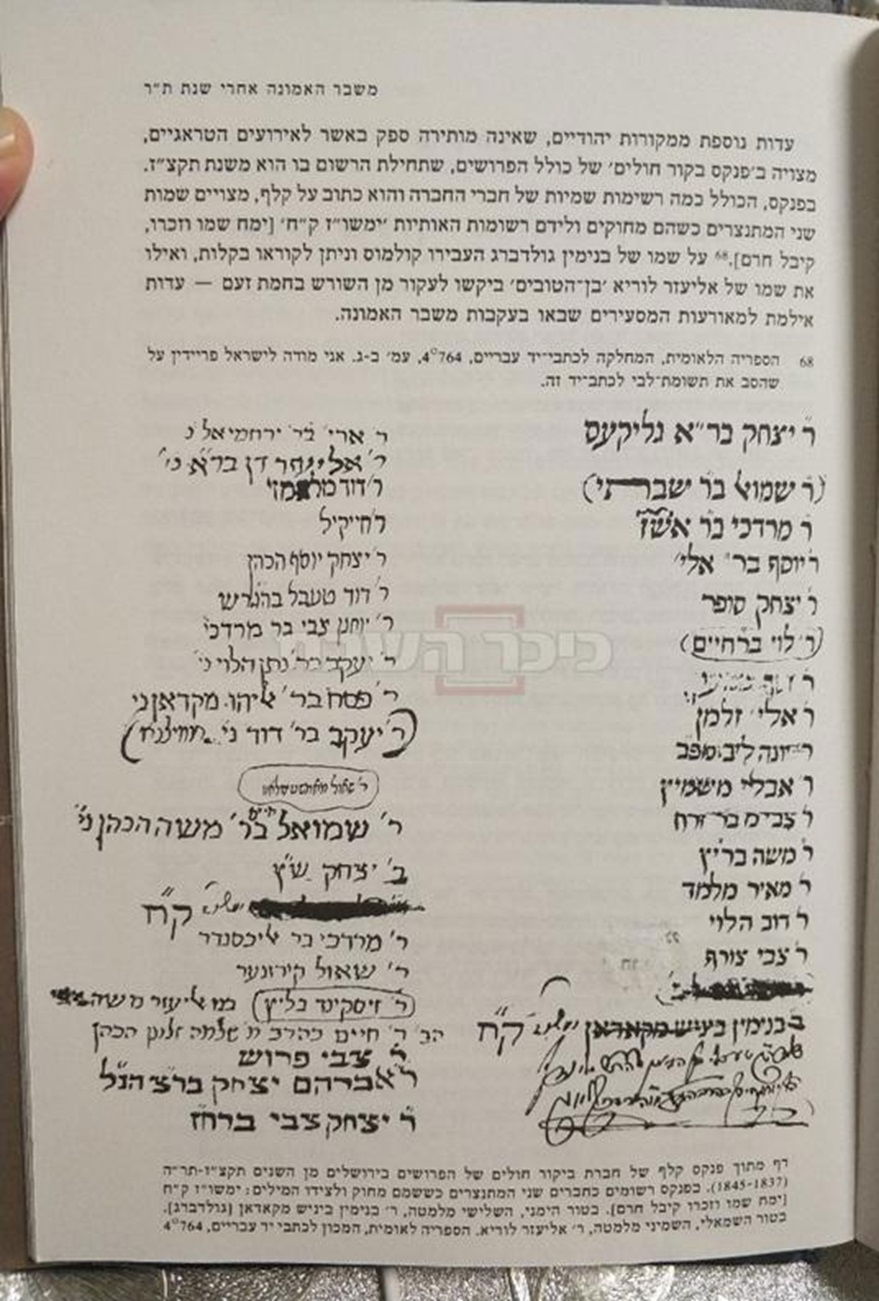 משבר האמונה אחרי שנת ת״ר
עדות נוספת ממקורות יהודיים, שאינה מותירה ספק באשר לאירועים הטראגיים,
מצויה ב׳פנקס בקור חולים׳ של כולל הפרושים, שתחילת הרשום בו הוא משנת תקצ״ז.
בפנקס, הכולל כמה רשימות שמיות של חברי החברה והוא כתוב על קלף, מצויים שמות
שני המתנצרים כשהם מחוקים ולידם רשומות האותיות ׳ימשו״ז ק״ח׳ [ימח שמו וזכרו,
קיבל חרם].68 על שמו של בנימין גולדברג העבירו קולמוס וניתן לקוראו בקלות, ואילו
את שמו של אליעזר לוריא ׳בן־הטובים׳ ביקשו לעקור מן השורש בחמת זעם — עדות
אילמת למאורעות המסעירים שבאו בעקבות משבר האמונה.
68 הספריה הלאומית, המחלקה לכתבי־יד עבריים, 4°764, עמ׳ ב-ג. אני מודה לישראל פריידין על
שהסב את תשומת־לבי לכתב־יד זה.
ר יצחק בר״א גליקעס
(ר שמואל בר שברתי)
ר מרדכי בר
ר יוסף בר אלי׳
ר יצחק סופר
(ר לוי בר חיים)
ר אלי׳ זלמן
ר יונה ליב
ר אבלי משמיץ
ר משה בריץ
ר מאיר מלמד
ר דוב הלוי
ר צבי צורף
בנימין מקאדאן ק״ח
ר׳ ארי׳ בר׳ ירחמיאל ני
ר׳ דוד
ר׳ חייקיל
ר׳ יצחק יוסף הכהן
ר׳ דוד טעבל
ר׳ יוחנן צבי בר מרדכי
ר׳ יעקב בר׳ נתן הלוי ני׳
ר׳ פסח בר׳ אליהו מקדאן ני
(ר׳ יעקב בר׳ דוד ני׳
ר׳ שאול
ר׳ שמואל חיים בר׳ משה הכהן ני״
ב׳ יצחק ש״ץ
ק״ח
ר׳ מרדכי בר אליכסנדר
ר׳ שאול קירזנער
(ר׳ זיסקינד בליץ) אליעזר משה
הב׳ ר׳ חיים בהרב שלמה זלמן הכהן
ר צבי פרוש
ר׳ אברהם יצחק ברצ הנ״ל
ר יצחק צבי
כיכר השבת
דף מתוך פנקס קלף של חברת ביקור חולים של הפרושים בירושלים מן השנים תקצ״ז-תר״ה
(1845-1837). בפנקס רשומים כחברים שני המתנצרים כששמם מחוק ולצידו המילים: ימשו״ז ק״ח
[ימח שמו וזכרו קיבל חרם]. בטור הימני, השלישי מלמטה, ר׳ בנימין ביניש מקאדאן [גולדברג].
בטור השמאלי, השמיני מלמטה, ר׳ אליעזר לוריא. הספריה לאומית, המכון לכתבי יד עבריים, 4°764